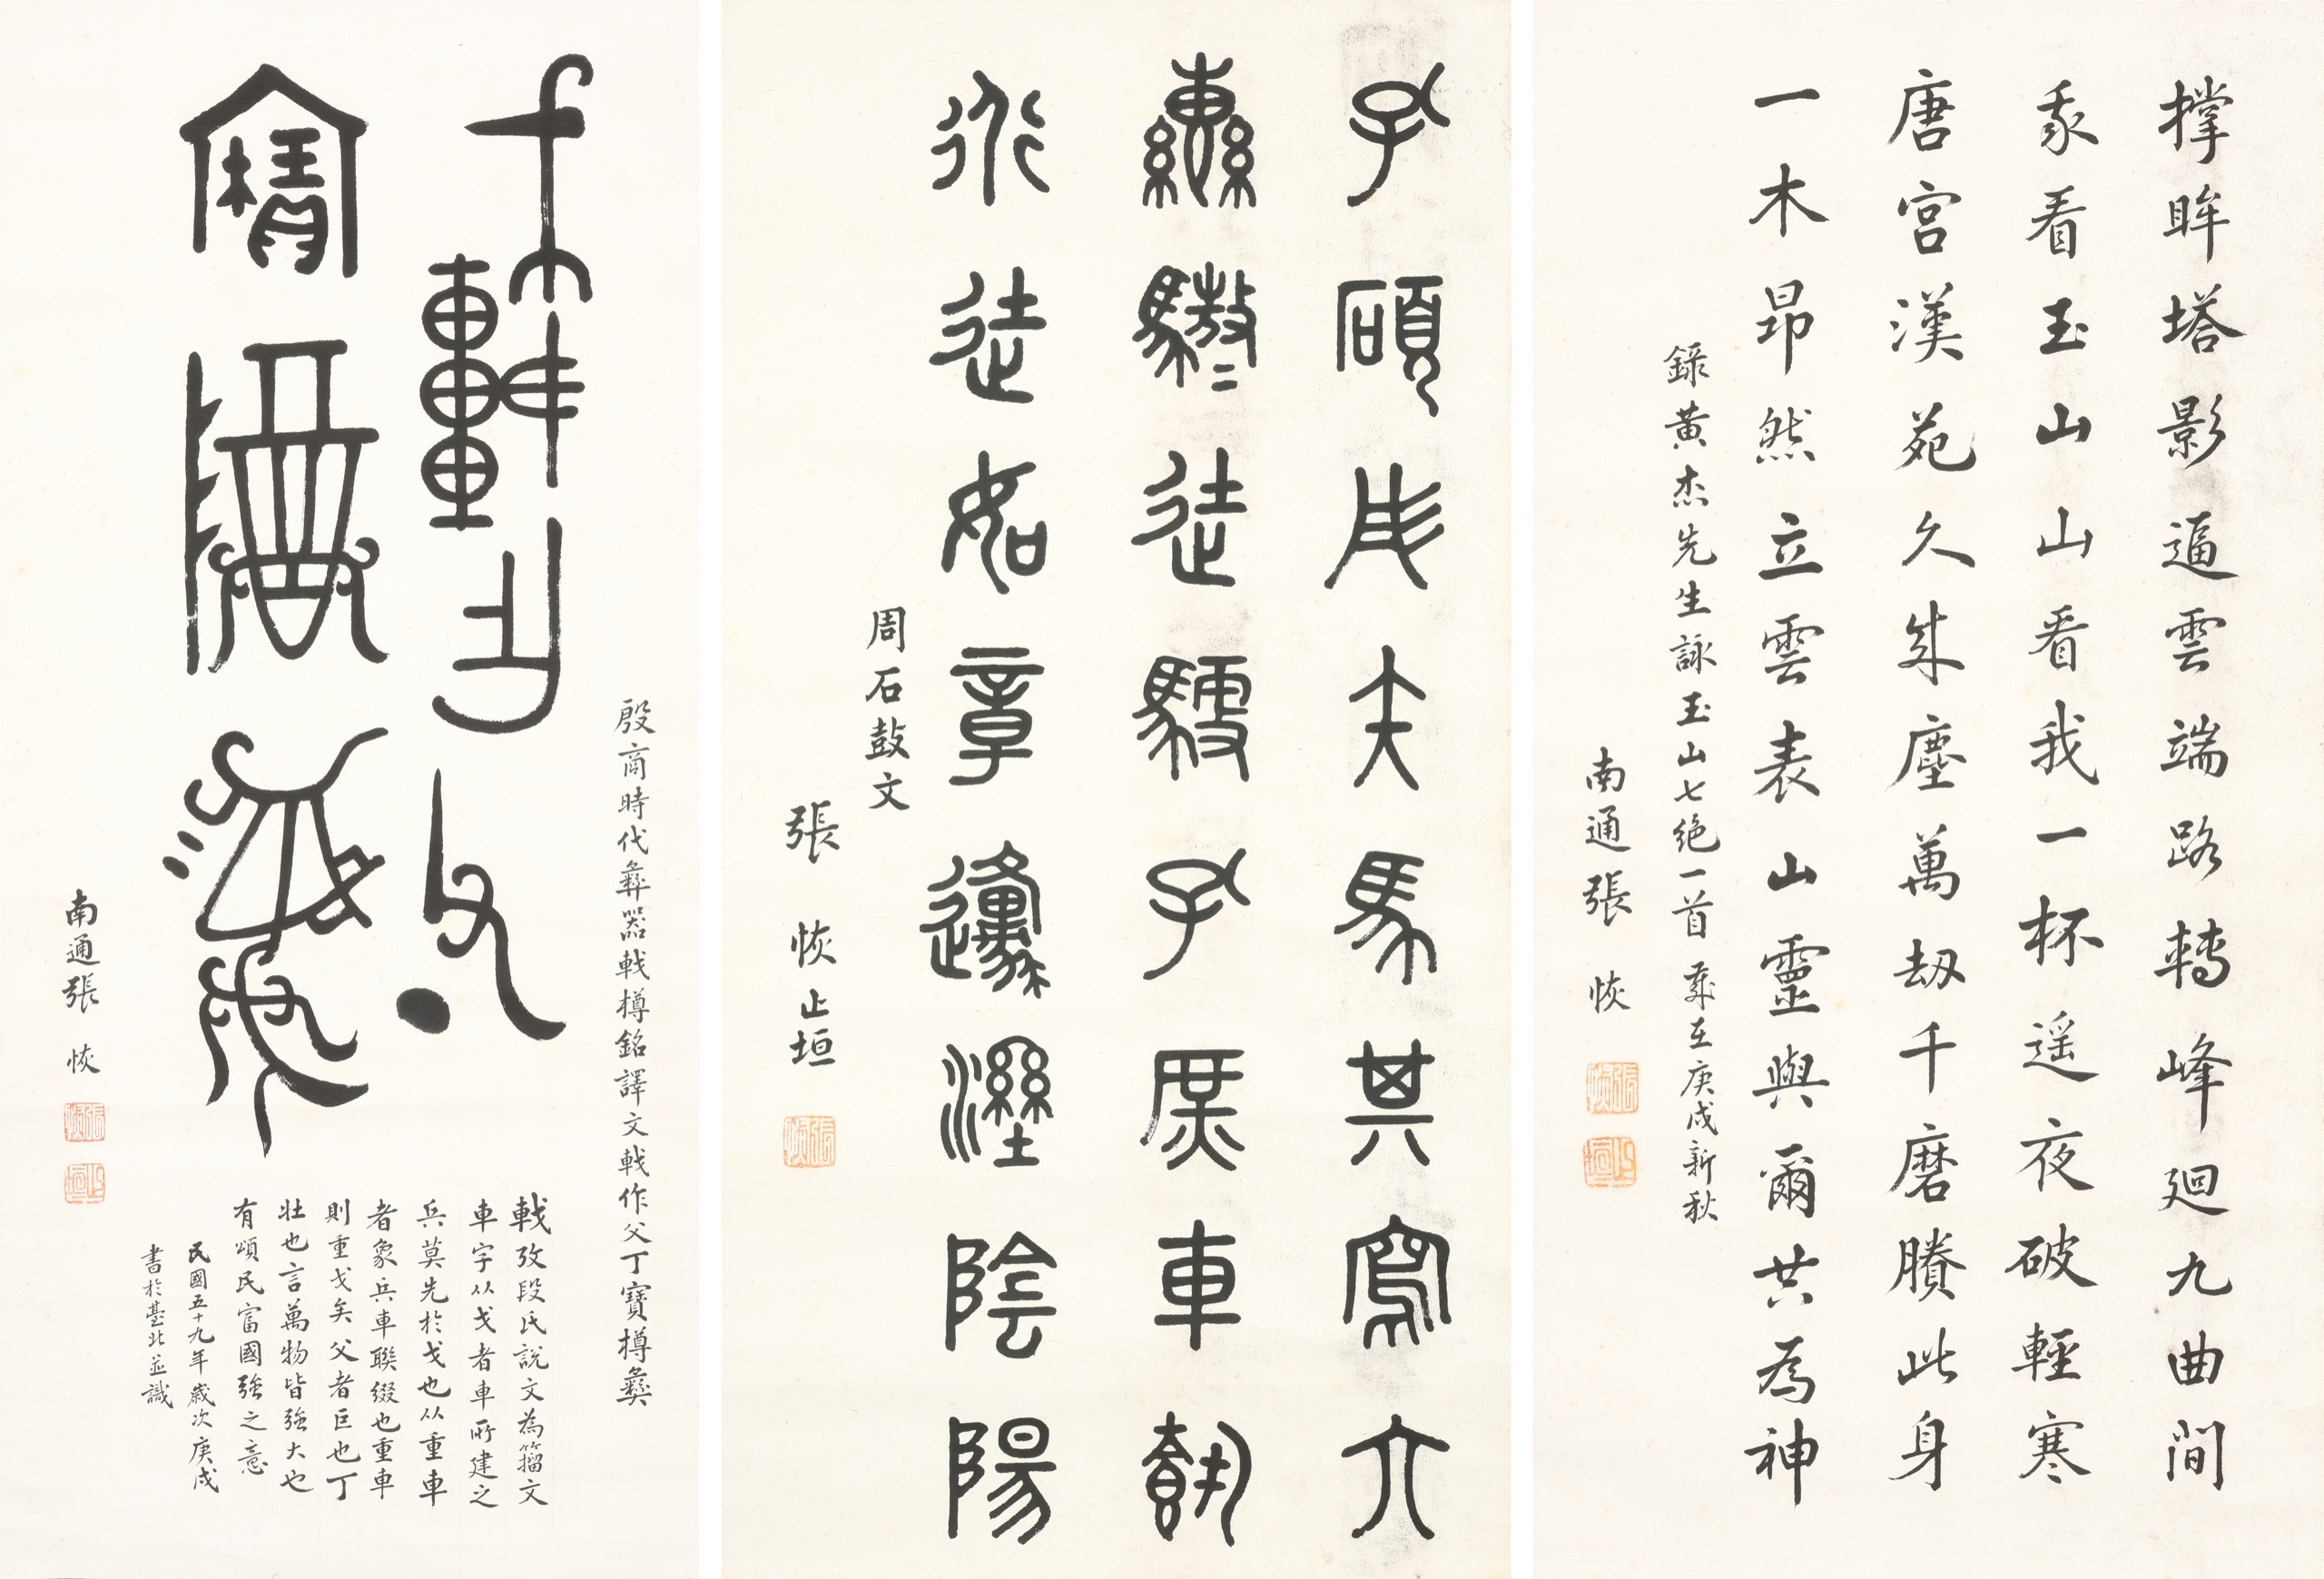 撐眸塔影逼雲端路轉峰迴九曲間
我看玉山山看我一杯遥夜破輕寒
唐宮漢苑久成塵萬劫千磨賸此身
一木昂然立雲表山靈與爾共為神
錄黃杰先生詠玉山七絕一首 歲在庚戌新秋
南通張恢
張恢
止垣
孔碩夫馬其寫六
轡驁=徒馭孔庶車
行徒如章邍溼陰陽
周石鼓文
張恢止垣
張恢
殷商時代彝器戟樽銘譯文戟作父丁寶樽彝
戟作父丁
寶樽彝
戟攷段氏說文為籀文
車字从戈者車所建之
兵莫先於戈也从重車
者象兵車聯綴也重車
則重戈矣父者巨也丁
壯也言萬物皆強大也
有頌民富國強之意
民國五十九年歲次庚戌
書於臺北並識
南通張恢
張恢
止垣